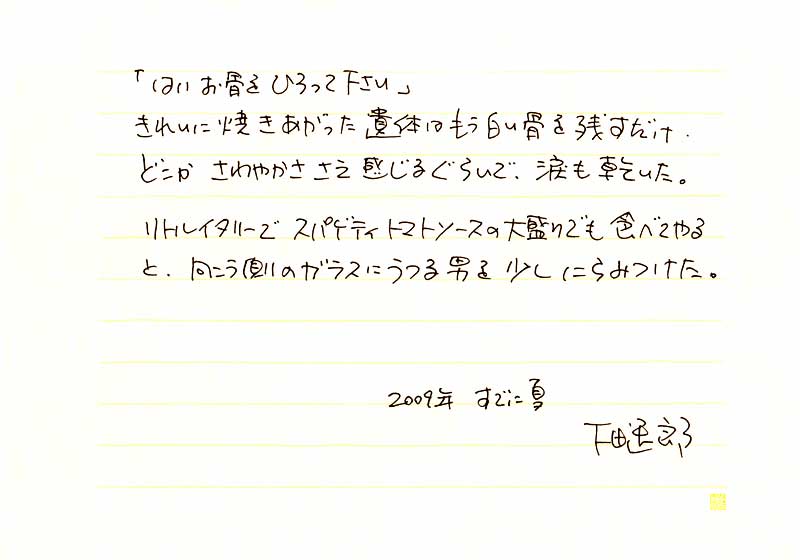 「はい お骨を ひろって下さい」
きれいに焼きあがった 遺体はもう白い骨を残すだけ.
どこか さわやかささえ 感じるぐらいで、涙も乾いた。
リトルイタリーで スパゲティトマトソースの大盛りでも 食べてやる
と、向こう側のガラスにうつる男を 少しにらみつけた。
2009年 すでに夏
下田逸郎